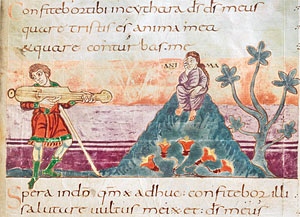 onfitebor tibi incythara ds ds meus
quare tristis es anima mea
et quare conturbas me
ANI MA
Spera indo qm adhuc confitebor illi
salutare uultus mei et ds meus